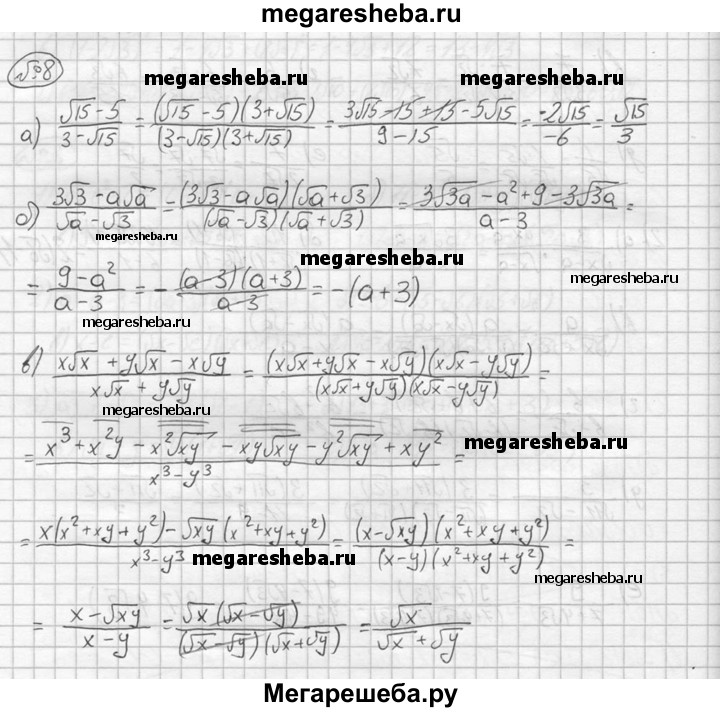 megaresheba.ru
№8
megaresheba.ru megaresheba.ru
а) (√15 - 5)/(3 - √15) = ((√15 - 5)(3 + √15))/((3 - √15)(3 + √15)) = (3√15 - 15 + 15 - 5√15)/(9 - 15) = (-2√15)/(-6) = √15/3
б) (3√3 - a√a)/(√a - √3) = ((3√3 - a√a)(√a + √3))/((√a - √3)(√a + √3)) = (3√3a - a² + 9 - 3√3a)/(a - 3) =
megaresheba.ru
megaresheba.ru
= (9 - a²)/(a - 3) = - ((a - 3)(a + 3))/(a - 3) = -(a + 3)
megaresheba.ru
megaresheba.ru
megaresheba.ru
в) (x√x + y√x - x√y)/(x√x + y√y) = ((x√x + y√x - x√y)(x√x - y√y))/((x√x + y√y)(x√x - y√y)) =
megaresheba.ru
= (x³ + x²y - x²√xy - xy√xy - y²√xy + xy²)/(x³ - y³) =
megaresheba.ru
= (x(x² + xy + y²) - √xy(x² + xy + y²))/(x³ - y³) = ((x - √xy)(x² + xy + y²))/((x - y)(x² + xy + y²)) =
megaresheba.ru
megaresheba.ru
= (x - √xy)/(x - y) = (√x(√x - √y))/((√x - √y)(√x + √y)) = √x/(√x + √y)
Мегарешеба.ру